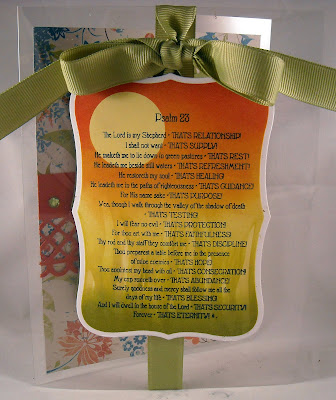 Psalm 23
The Lord is my Shepherd • THAT'S RELATIONSHIP!
I shall not want • THAT'S SUPPLY!
He maketh me to lie down in green pastures • THAT'S REST!
He leadeth me beside still waters • THAT'S REFRESHMENT!
He restoreth my soul • THAT'S HEALING!
He leadeth me in the paths of righteousness • THAT'S GUIDANCE!
For His name sake • THAT'S PURPOSE!
Yea, though I walk through the valley of the shadow of death
• THAT'S TESTING!
I will fear no evil • THAT'S PROTECTION!
For thou art with me • THAT'S FAITHFULNESS!
Thy rod and thy staff they comfort me • THAT'S DISCIPLINE!
Thou preparest a table before me in the presence
of mine enemies • THAT'S HOPE!
Thou anointest my head with oil • THAT'S CONSECRATION!
My cup runneth over • THAT'S ABUNDANCE!
Surely goodness and mercy shall follow me all the
days of my life • THAT'S BLESSING!
And I will dwell in the house of the Lord • THAT'S SECURITY!
Forever • THAT'S ETERNITY!